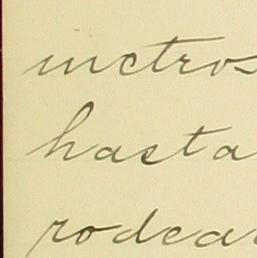 metros
hasta
rodea